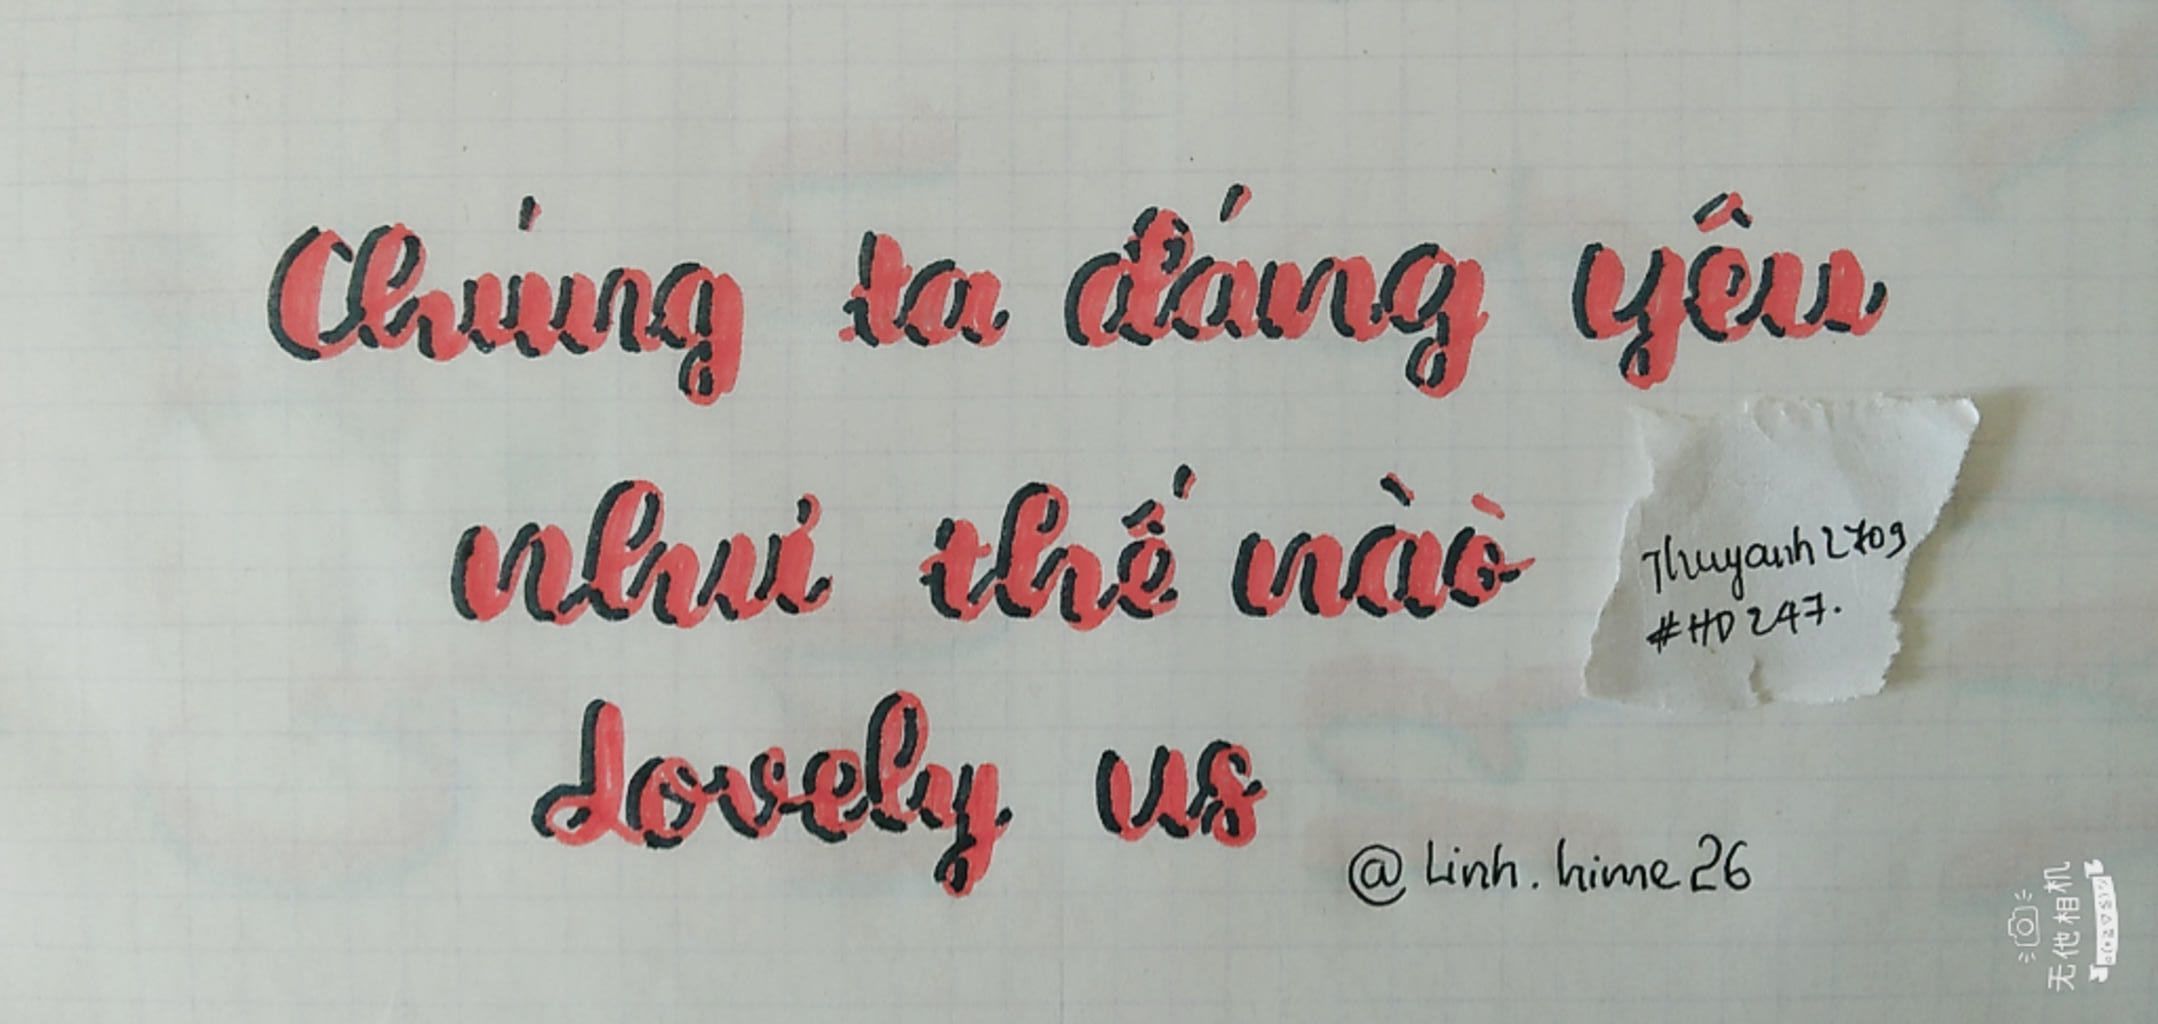 Chúng ta đáng yêu
như thế nào
Lovely us
Thuyanh2709
#HD247.
@Linh.hime26
无他相机